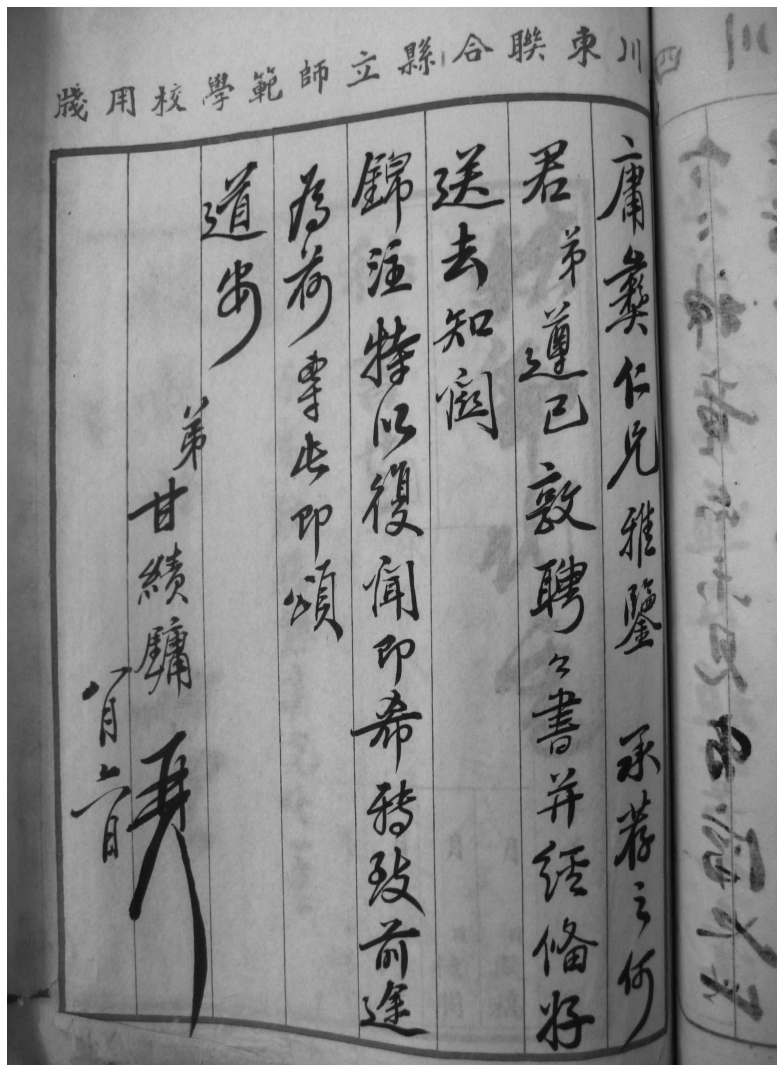 川東聯合縣立師範學校用牋
庸彝仁兄雅鑒　承荐之何
君弟遵已敦聘々書并經俻好
送去知關
錦注特以復聞即希轉致前途
為荷專此即頌
道安
弟甘績鏞
八月六日